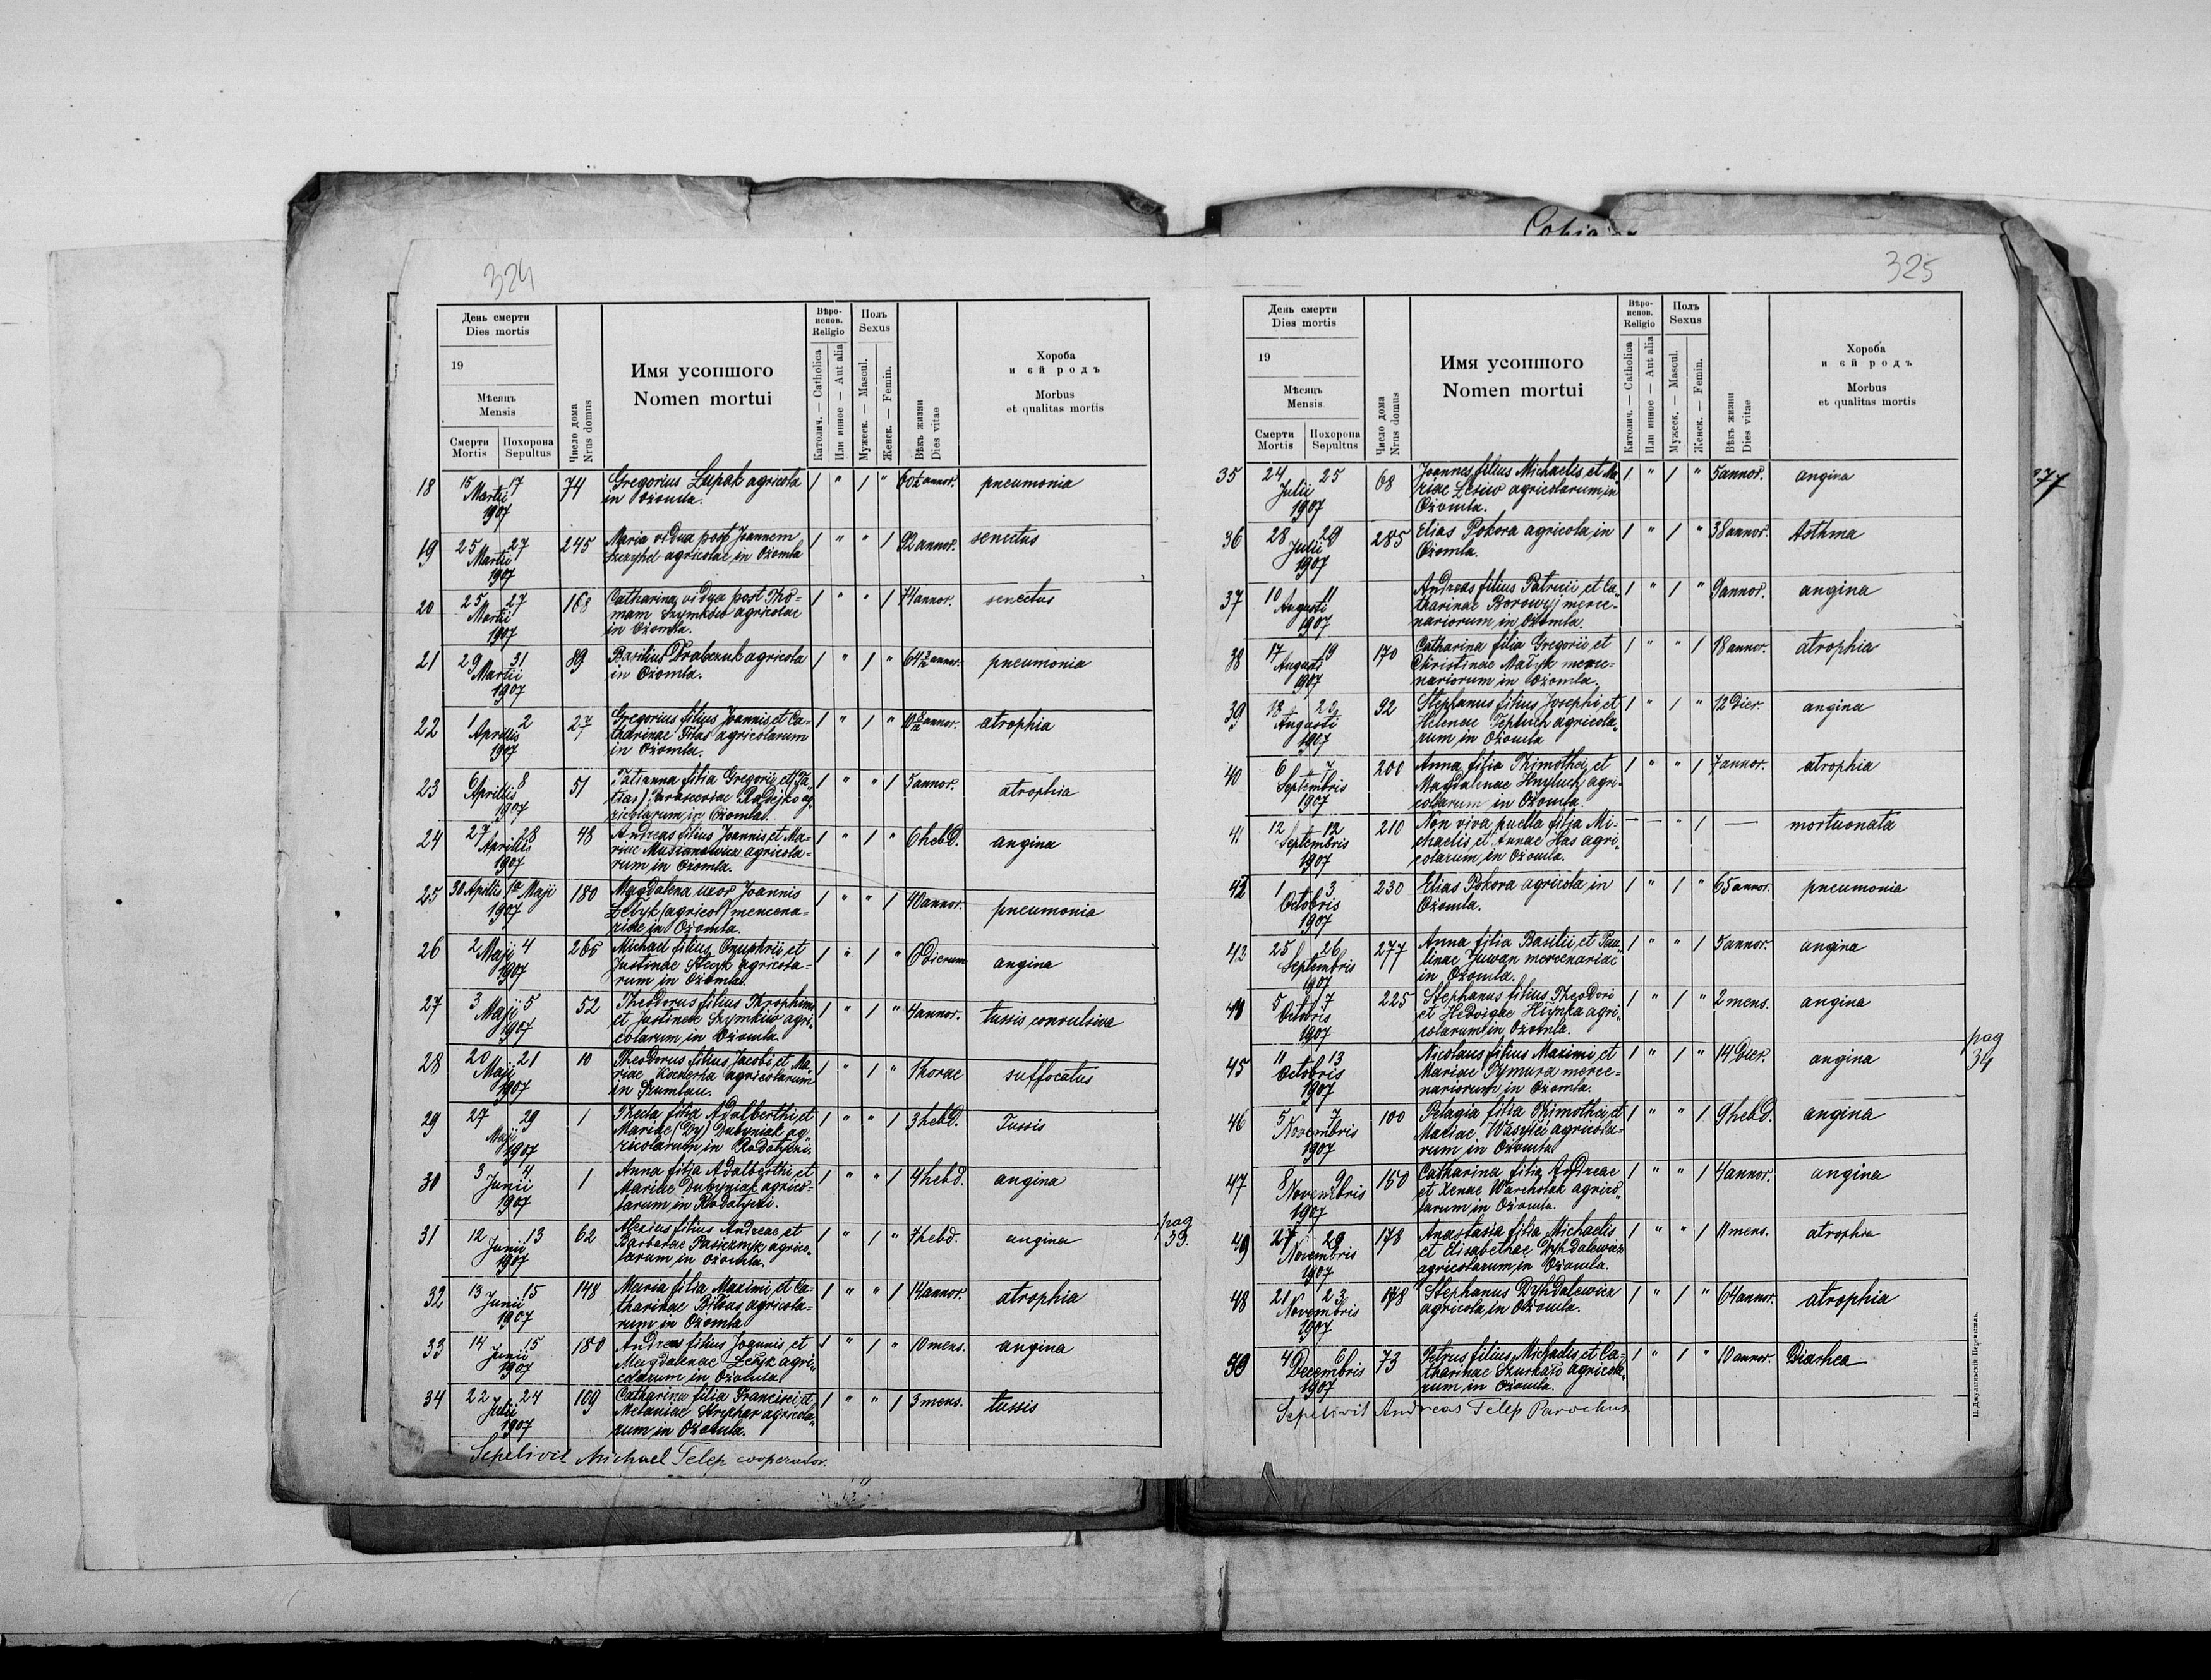 Copia
324
День смерти
Dies mortis
19
Мѣсяць
Mensis
Смерти
Mortis
Похорона
Sepultus
Число дома
Nrus domus
Имя усопшого
Nomen mortui
Вѣро-
испов.
Religio
Католич. — Catholica
Или инное — Aut alia
Полъ
Sexus
Мужеск. — Mascul.
Женск. — Femin.
Вѣкъ жизни
Dies vitae
Хороба
и єй родъ
Morbus
et qualitas mortis
18 15 Martii 17 1907 74 Gregorius Lupak agricola 1 " 1 " annor. pneumonia
in Ożomla.
19 25 Martii 27 1907 245 Maria vidua post Joannem 1 " " 1 92 annor. senectus
agricolae in Ożomla
20 25 Martii 27 1907 168 Catharina vidua post Tho= 1 " " 1 74 annor. senectus
mam Szymkow agricolae
in Ożomla.
21 29 Martii 31 1907 89 Basilius Drabczuk agricola 1 " 1 " annor. pneumonia
in Ożomla.
22 1 Aprilis 2 1907 27 Gregorius filius Joannis et Ca= 1 " 1 " annor. atrophia
tharinae agricolarum
in Ożomla.
23 6 Aprilis 8 1907 51 Tatianna filia Gregorii et 1 " " 1 5 annor. atrophia
Parasceviae Radejko ag
ricolarum in Ożomla.
24 27 Aprilis 28 1907 48 Andreas filius Joannis et Ma= 1 " 1 " 6 hebd. angina
riae Muzianowicz agricola=
rum in Ożomla.
25 30 Aprilis 1a Maji 1907 180 Magdalena uxor Joannis 1 " " 1 40 annor. pneumonia
Zełyk (agricol) mercena=
riae in Ożomla.
26 2 Maji 4 1907 265 Michael filius Onuphrii et 1 " 1 " dierum angina
Justinae Stecyk agricola=
rum in Ożomla.
27 3 Maji 5 1907 52 Theodorus filius Throphimi 1 " 1 " 4 annor. tussis convulsiva
et Justinae Szymkiw agri=
colarum in Ożomla.
28 20 Maji 21 1907 10 Theodorus filius Jacobi et Ma= 1 " 1 " 1 horae suffocatus
riae agricolarum
in Szumlau.
29 27 Maji 29 1907 1 Thecla filia Adalberthi et 1 " " 1 3 hebd. Tussis
Mariae (Dy) Dubyniak ag
ricolarum in Rodatycze.
30 3 Junii 4 1907 1 Anna filia Adalberthi et 1 " " 1 4 hebd. angina
Mariae Dubyniak agrico=
larum in Rodatycze.
31 12 Junii 13 1907 62 Alexius filius Andreae et 1 " 1 " 7 hebd. angina
Barbarae Pasicznyk agrico=
larum in Ożomla.
pag
39.
32 13 Junii 15 1907 148 Maria filia Maximi et Ca= 1 " " 1 14 annor. atrophia
tharinae Biłous agricola=
rum in Ożomla
33 14 Junii 15 1907 180 Andreas filius Joannis et 1 " 1 " 10 mens. angina
Magdalenae Zełyk agri=
colarum in Ożomla
34 22 Julii 24 1907 109 Catharina filia Francisci et 1 " " 1 3 mens. tussis
Melaniae Strychar agricola=
rum in Ożomla.
Sepelivit Michael Telep cooperator.
325
День смерти
Dies mortis
19
Мѣсяць
Mensis
Смерти
Mortis
Похорона
Sepultus
Число дома
Nrus domus
Имя усопшого
Nomen mortui
Вѣро-
испов.
Religio
Католич. — Catholica
Или инное — Aut alia
Полъ
Sexus
Мужеск. — Mascul.
Женск. — Femin.
Вѣкъ жизни
Dies vitae
Хороба
и єй родъ
Morbus
et qualitas mortis
35 24 Julii 25 1907 68 Joannes filius Michaelis et Ma= 1 " 1 " 5 annor. angina
riae Lesiw agricolarum in
Ożomla.
36 28 Julii 29 1907 285 Elias Pokora agricola in 1 " 1 " 38 annor. Asthma
Ożomla.
37 10 Augusti 11 1907 Andreas filius Patricii et Ca= 1 " 1 " 9 annor. angina
tharinae Borowyj merce=
nariorum in Ożomla.
38 17 Augusti 19 1907 170 Catharina filia Gregorii et 1 " " 1 18 annor. atrophia
Christinae Małyk merce=
nariorum in Ożomla.
39 18 Augusti 20 1907 92 Stephanus filius Josephi et 1 " 1 " 12 dier. angina
Helenae Tepluch agricola=
rum in Ożomla
40 6 Septembris 7 1907 200 Anna filia Thimothei et 1 " " 1 7 annor. atrophia
Magdalenae Hnyluch agri=
colarum in Ożomla.
41 12 Septembris 12 1907 210 Non viva puella filia Mi= — — " 1 — mortuonata
chaelis et Annae Has agri=
colarum in Ożomla.
42 1 Octobris 3 1907 230 Elias Pokora agricola in 1 " 1 " 65 annor. pneumonia
Ożomla.
43 25 Septembris 26 1907 277 Anna filia Basilii et Pau= 1 " " 1 5 annor. angina
linae Juwan mercenariae
in Ożomla.
44 5 Octobris 7 1907 225 Stephanus filius Theodori 1 " 1 " 2 mens. angina
et Hedvigae Hłynka agri=
colarum in Ożomla.
45 11 Octobris 13 1907 Nicolaus filius Maximi et 1 " 1 " 14 dier. angina
Mariae Tymura merce=
nariorum in Ożomla.
pag
34
46 5 Novembris 7 1907 100 Pelagia filia Thimothei et 1 " " 1 9 hebd. angina
Mariae Wasylci agricola=
rum in Ożomla.
47 8 Novembris 9 1907 150 Catharina filia Andreae 1 " " 1 4 annor. angina
et Xenae Warcholak agrico=
larum in Ożomla.
49 27 Novembris 29 1907 178 Anastasia filia Michaelis 1 " " 1 11 mens. atrophia
et Elisabethae Dyhdalewicz
agricolarum in Ożomla.
48 21 Novembris 23 1907 178 Stephanus Dyhdalewicz 1 " 1 " 64 annor. atrophia
agricola in Ożomla.
50 4 Decembris 6 1907 73 Petrus filius Michaelis et Ca= 1 " 1 " 10 annor. Diarhea
tharinae Szurkało agricola=
rum in Ożomla.
Sepelivit Andreas Telep Parochus
277